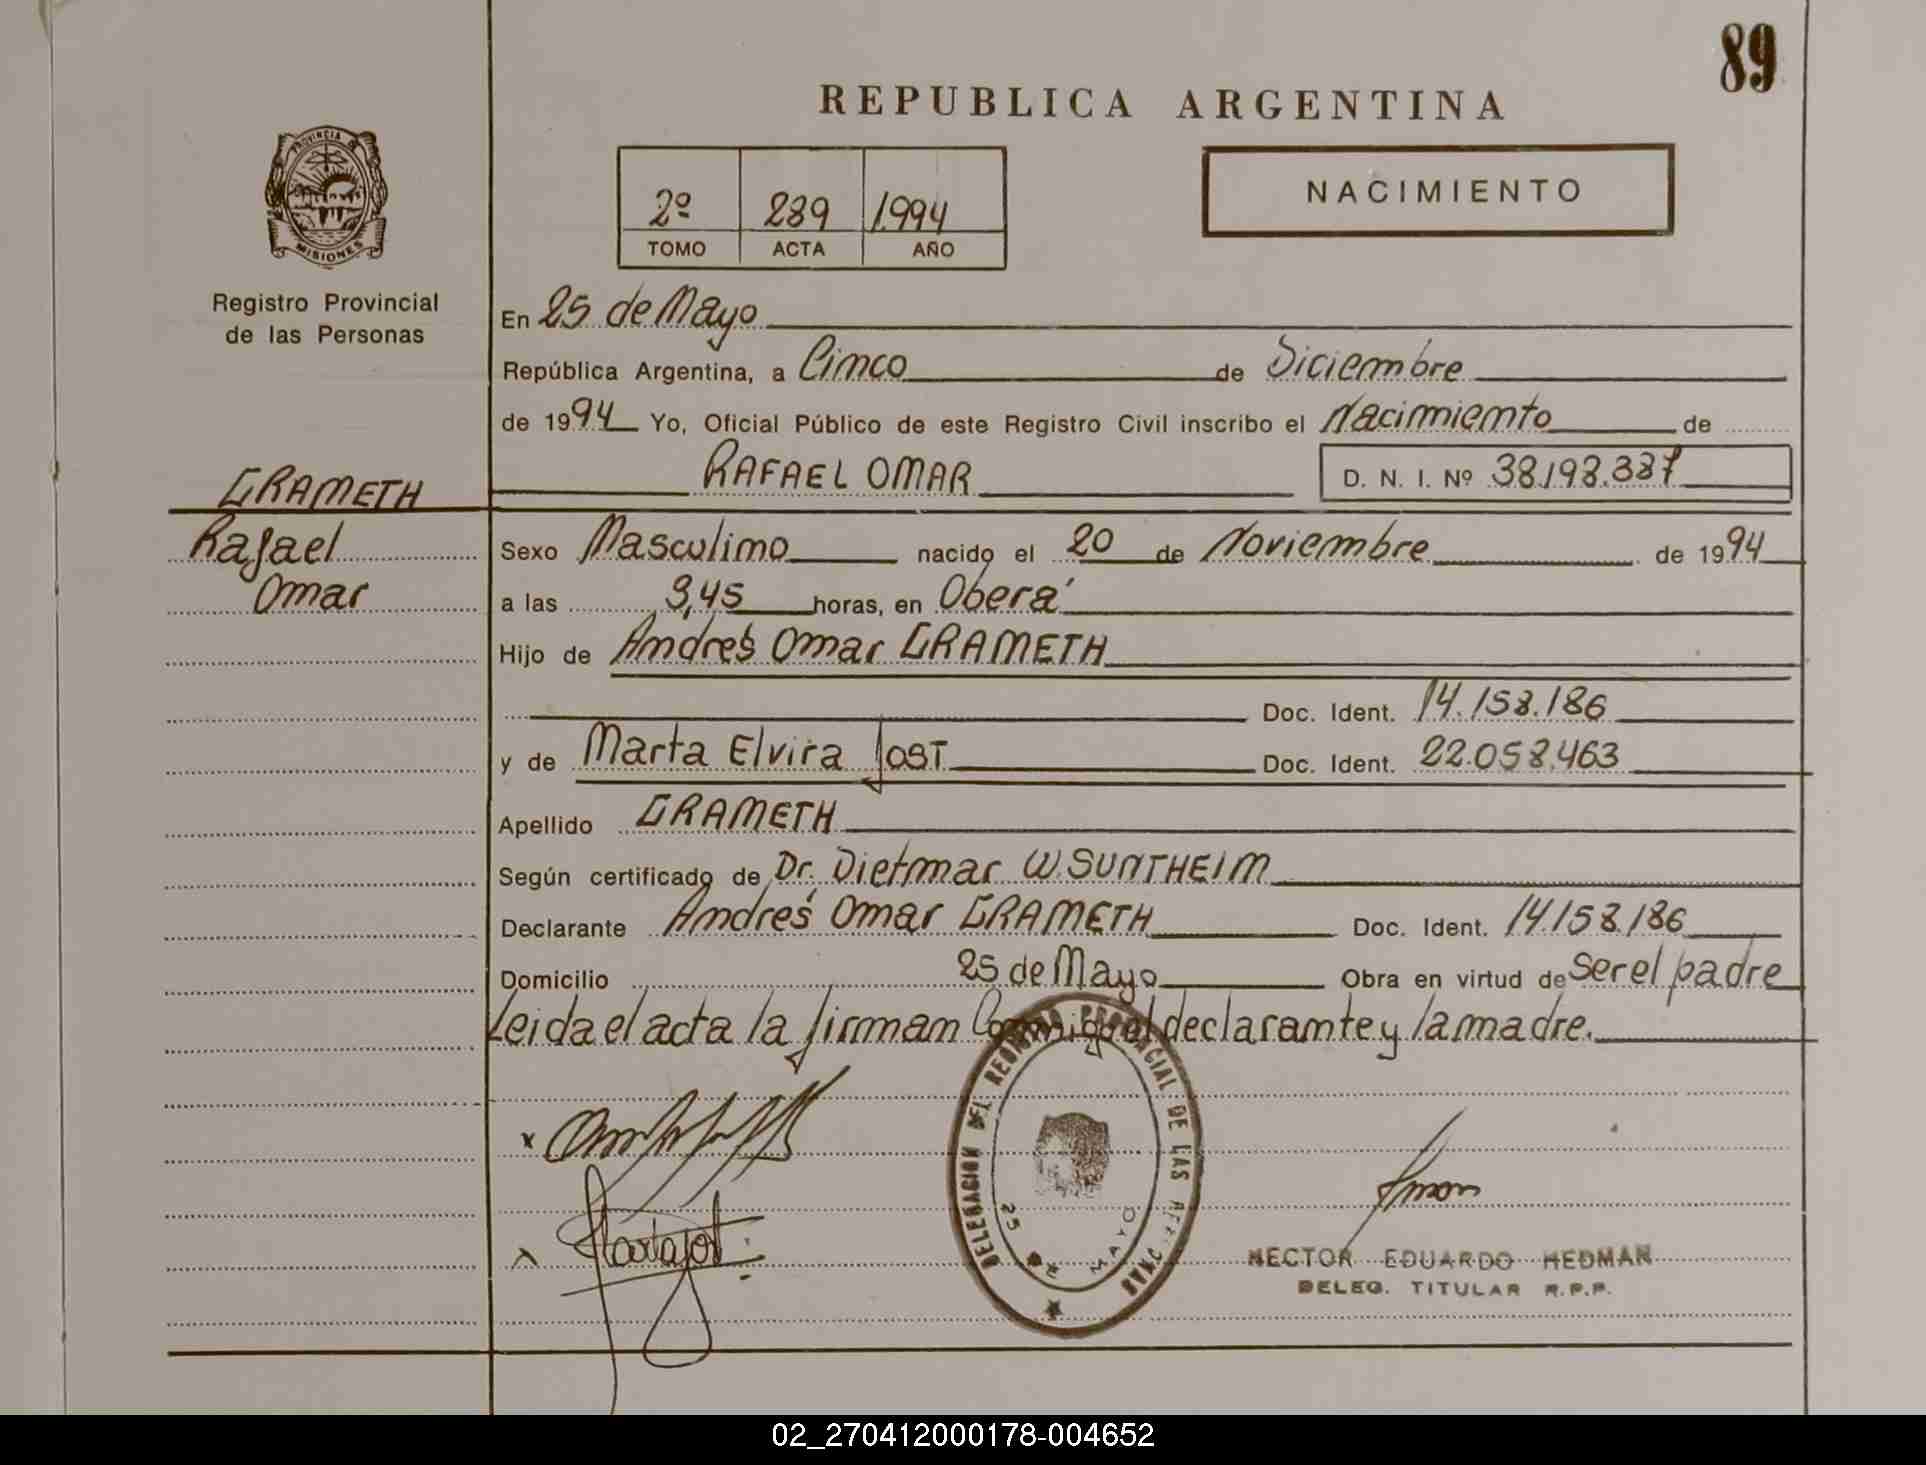 89
REPUBLICA ARGENTINA
PROVINCIA DE
MISIONES
Registro Provincial
de las Personas
2º 289 1.994
TOMO ACTA AÑO
NACIMIENTO
En 25 de Mayo
República Argentina, a Cinco de Diciembre
de 1994 Yo, Oficial Público de este Registro Civil inscribo el Nacimiento de
GRAMETH
Rafael
Omar
RAFAEL OMAR D. N. I. Nº 38.198.387
Sexo Masculino nacido el 20 de Noviembre de 1994
a las 9,45 horas, en Oberá
Hijo de Andrés Omar GRAMETH
Doc. Ident. 14.158.186
y de Marta Elvira JOST Doc. Ident. 22.058.463
Apellido GRAMETH
Según certificado de Dr. Dietmar W. SUNTHEIM
Declarante Andrés Omar GRAMETH Doc. Ident. 14.158.186
Domicilio 25 de Mayo Obra en virtud de ser el padre
Leida el acta la firman Conmigo el declarante y la madre.
DELEGACION DEL REGISTRO PROVINCIAL DE LAS PERSONAS
25 DE MAYO
x
Marta Jost
HECTOR EDUARDO HEDMAN
DELEG. TITULAR R.P.P.
02_270412000178-004652